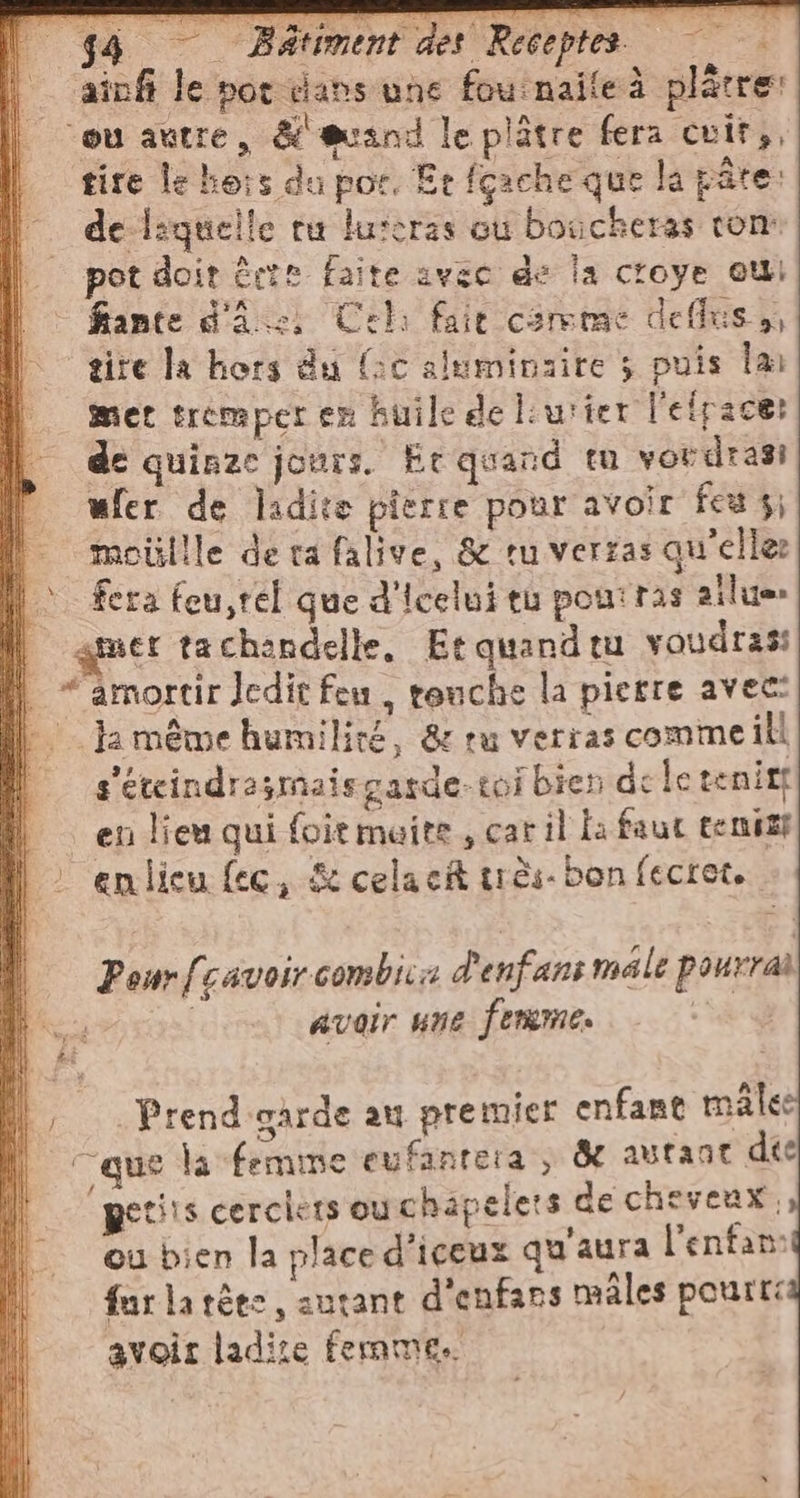 54 Bâtiment des Receptes.
ainſi le pot dans une fournaiſe à plâtre
ou autre, & quand le plâtre ſera cuit,
tire le hors du pot. Et ſçache que la pâte
de laquelle tu luteras ou boucheras ton
pot doit être faite avec de la croye ou
fiante d'âne. Cela fait comme deſſus,
tire la hors du ſac aluminaire ; puis la
met tremper en huile de laurier l'eſpace
de quinze jours. Et quand tu voudras
uſer de ladite pierre pour avoir feu ;
moüillle de ta ſalive, & tu verras qu'elle
fera feu, tel que d'icelui tu pourras allu-
mer ta chandelle. Et quand tu voudras
amortir ledit feu, touche la pierre avec
la même humilité, & tu verras comme il
s'éteindra; mais garde-toi bien de le tenir
en lieu qui ſoit moite, car il la faut tenir
en lieu ſec, & cela eſt très-bon ſecret.
Pour ſçavoir combien d'enfans mâle pourra
avoir une femme.
Prend garde au premier enfant mâle
que la femme enfantera, & autant de
petits cerclets ou chapelets de cheveux,
ou bien la place d'iceux qu'aura l'enfant
ſur la tête, autant d'enfans mâles pourra
avoir ladite femme.